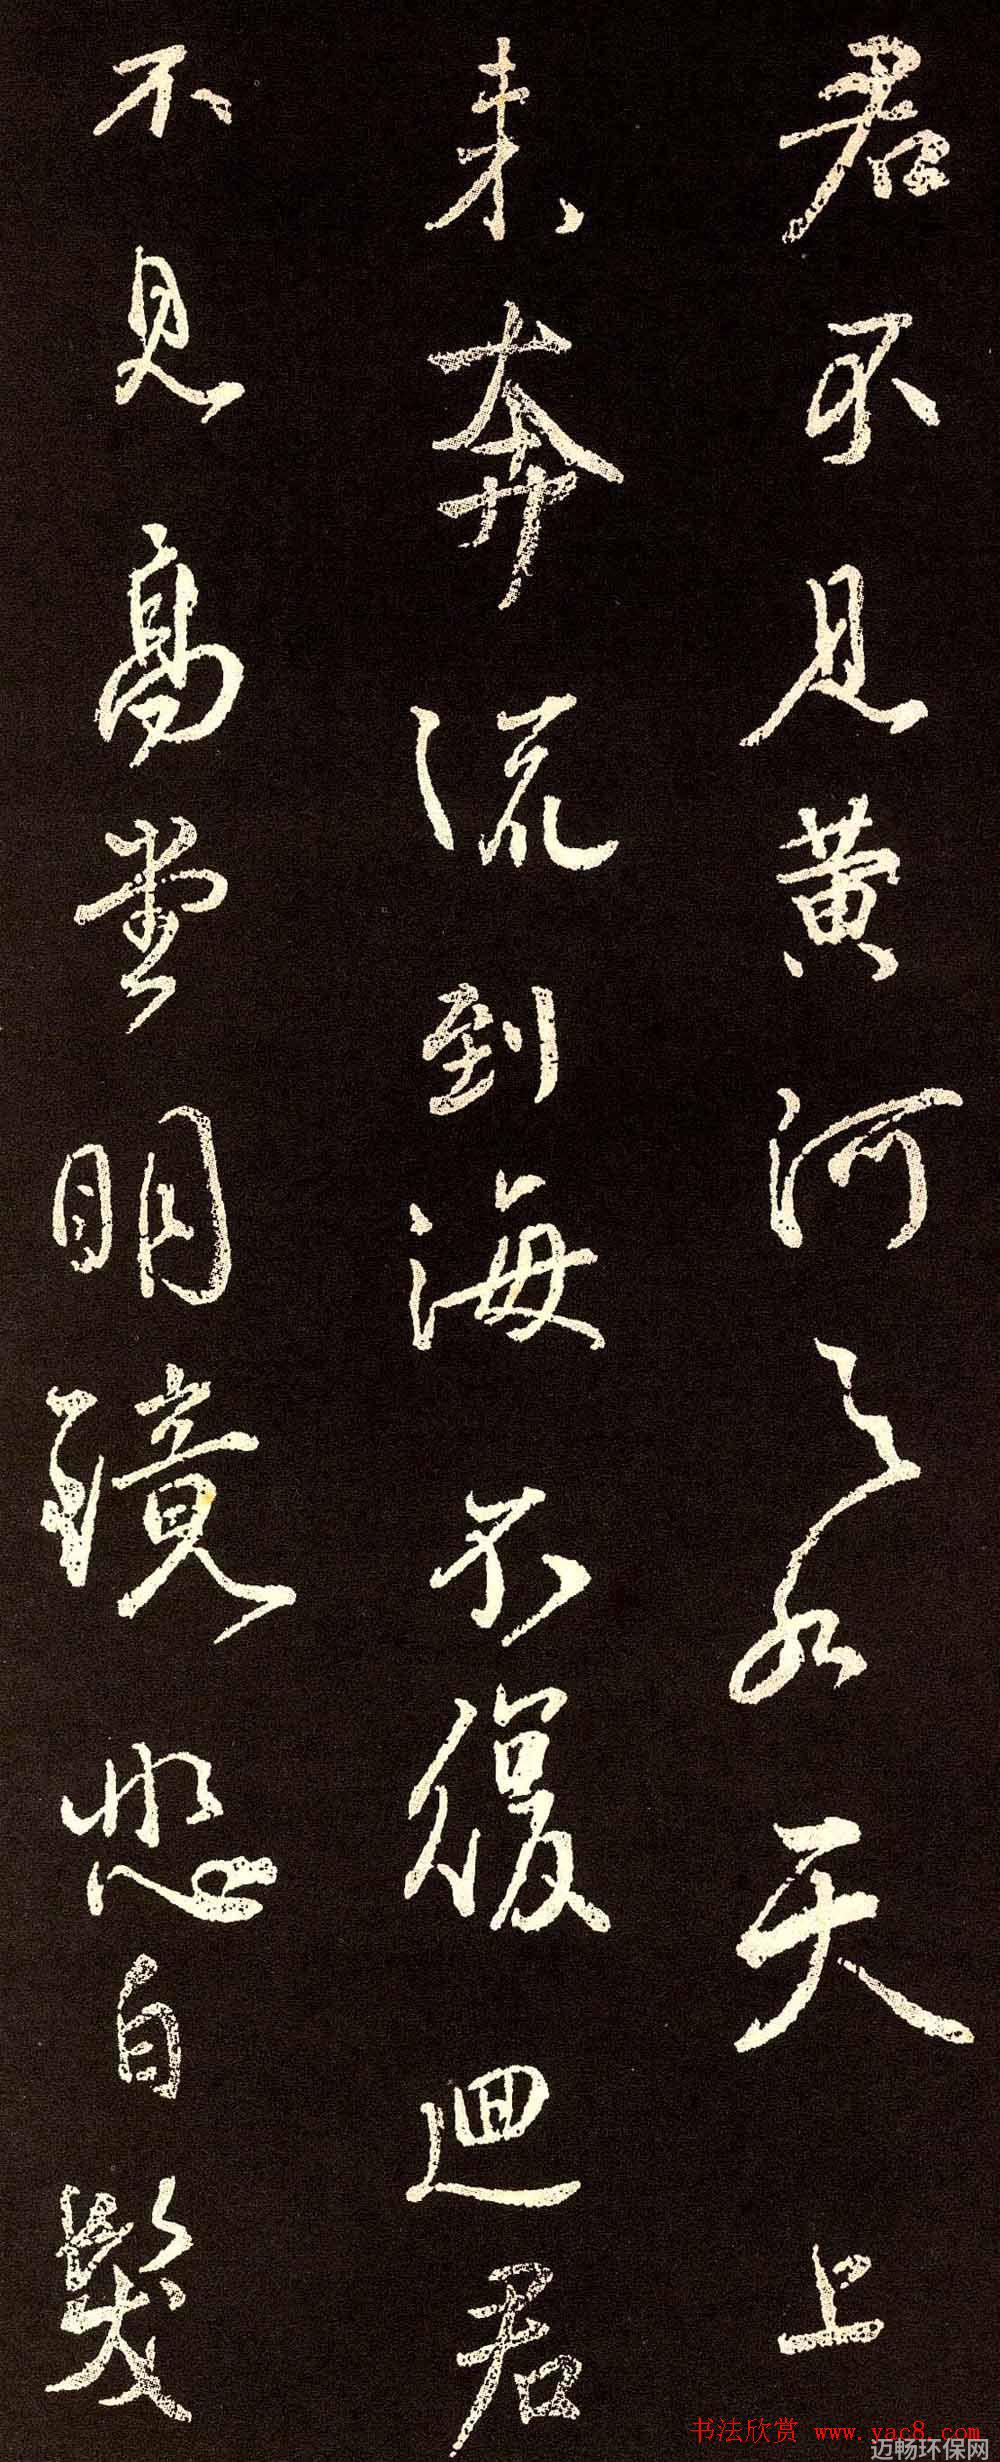 君不見黄河之水天上
来奔流到海不復迴君
不見高堂明鏡悲白髮
书法欣赏 www.yac8.com
迈畅环保网